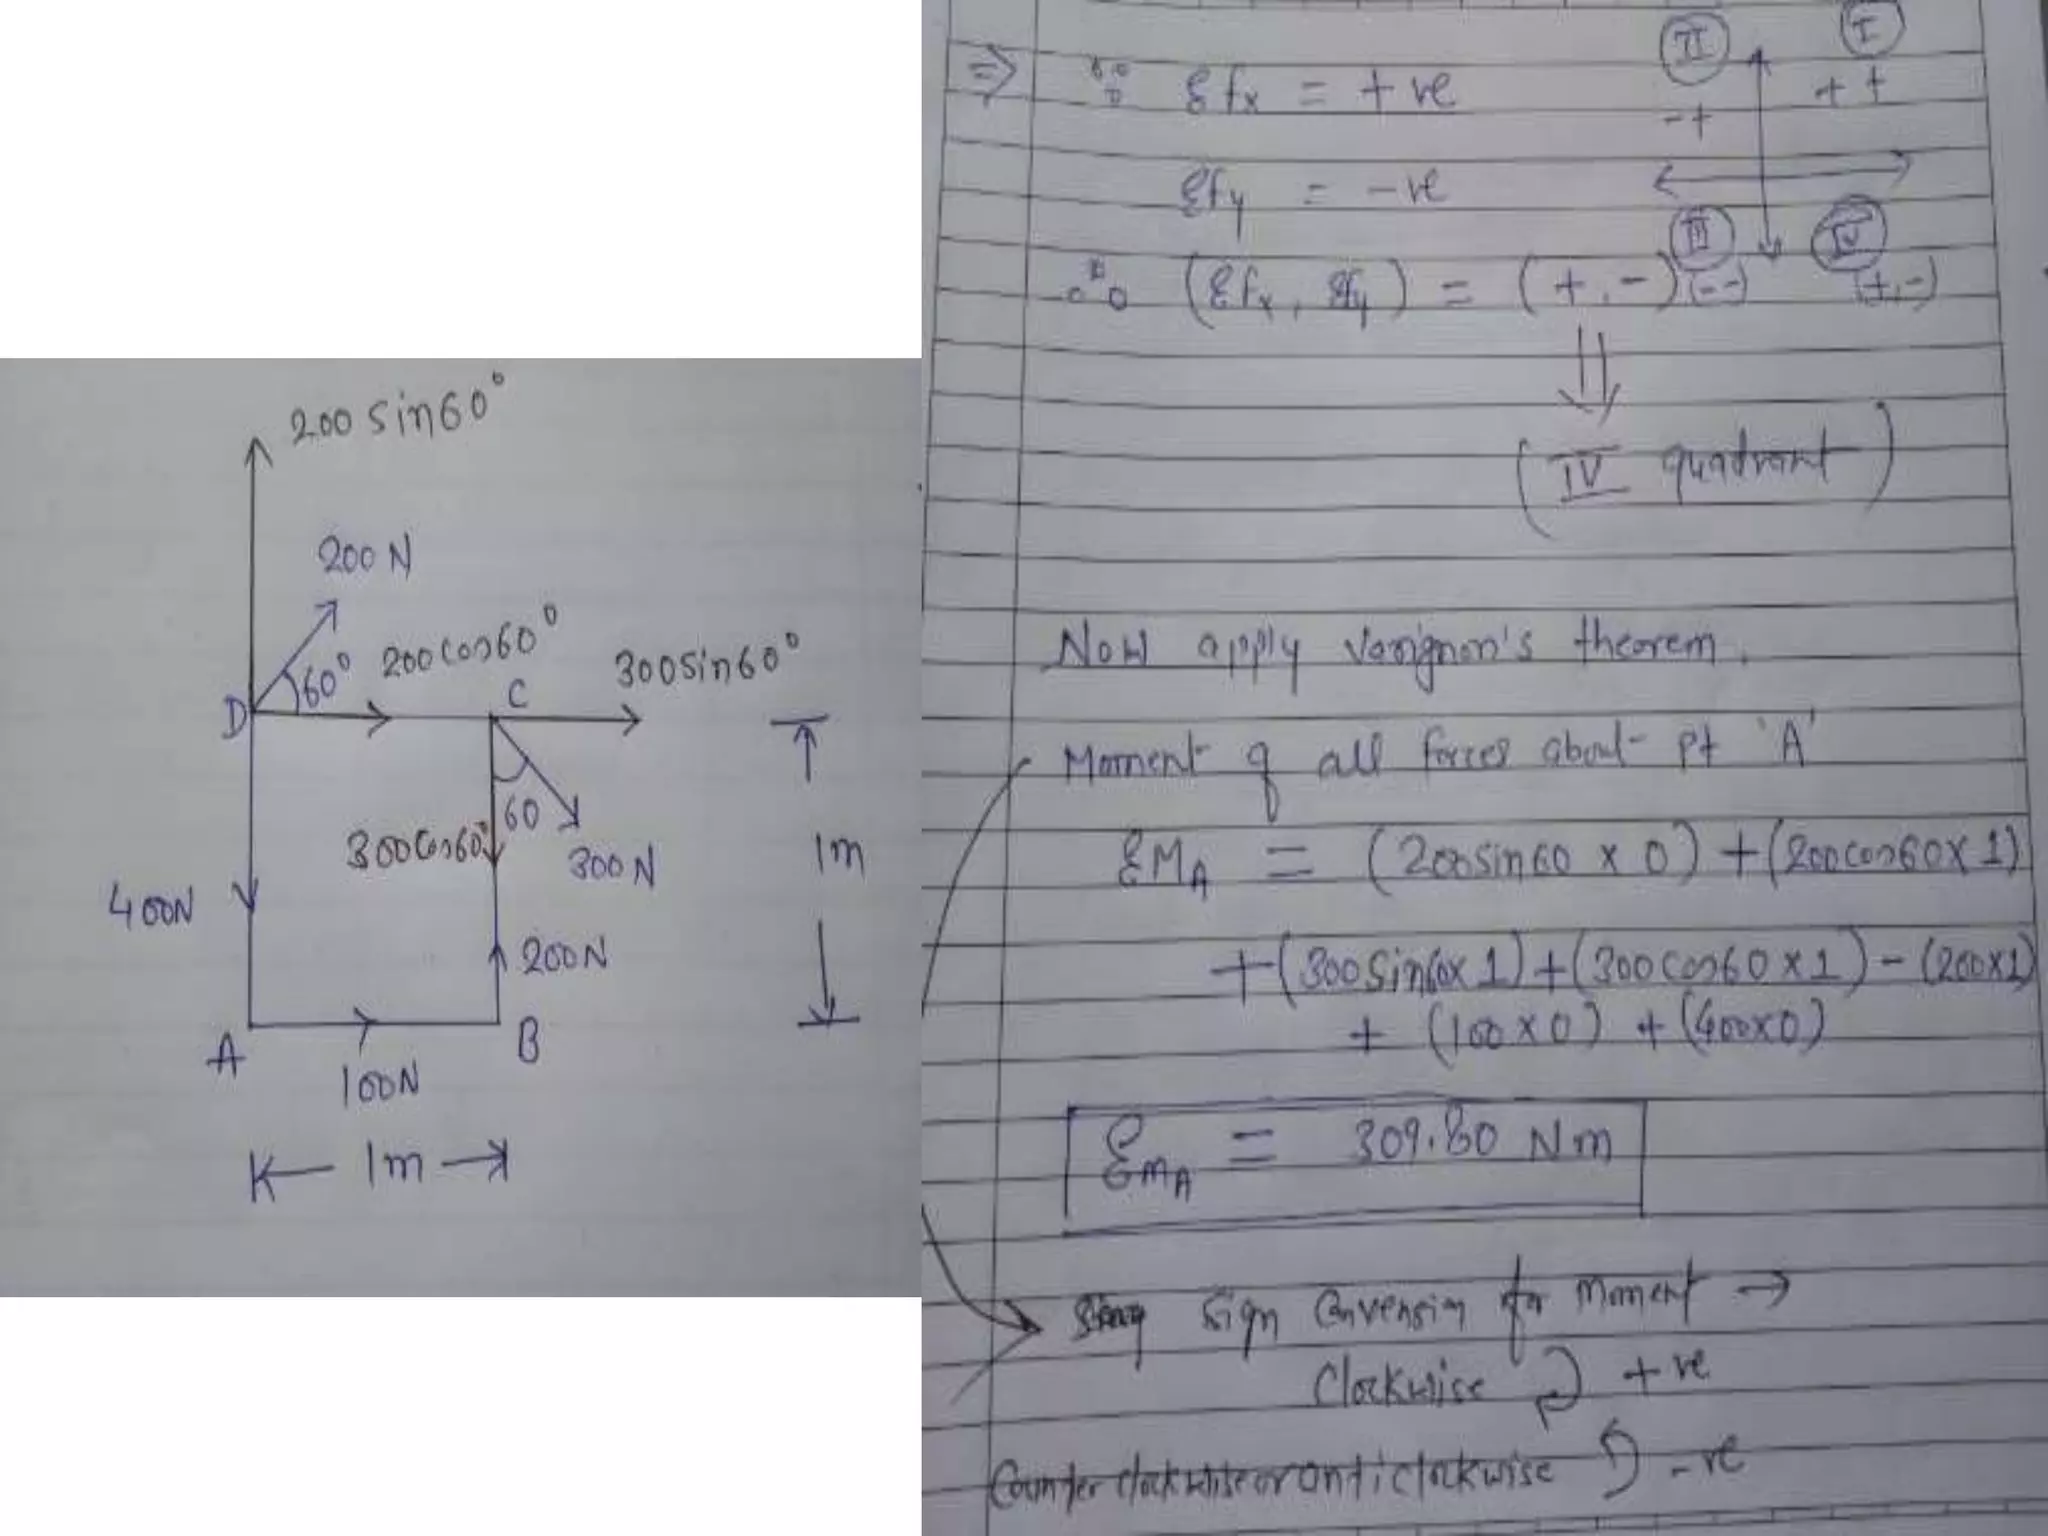 200 sin60°
200 N
60°
200 cos60°
300sin60°
D
C
60
300cos60°
300 N
1m
400N
200N
A
B
100N
1m
⇒ ∵ Σfx = +ve
II
I
- +
+ +
Σfy = -ve
III
IV
∴ (Σfx, Σfy) = (+, -)
(- -)
(+, -)
(IV quadrant)
Now apply Varignon's theorem.
Moment of all forces about pt 'A'
ΣMA = (200sin60 x 0) + (200cos60x 1)
+ (300sin60x 1) + (300cos60 x 1) - (200x1)
+ (100 x 0) + (400x0)
ΣMA = 309.80 Nm
Sign Convension for Moment →
Clockwise +ve
Counter clockwise or anticlockwise -ve